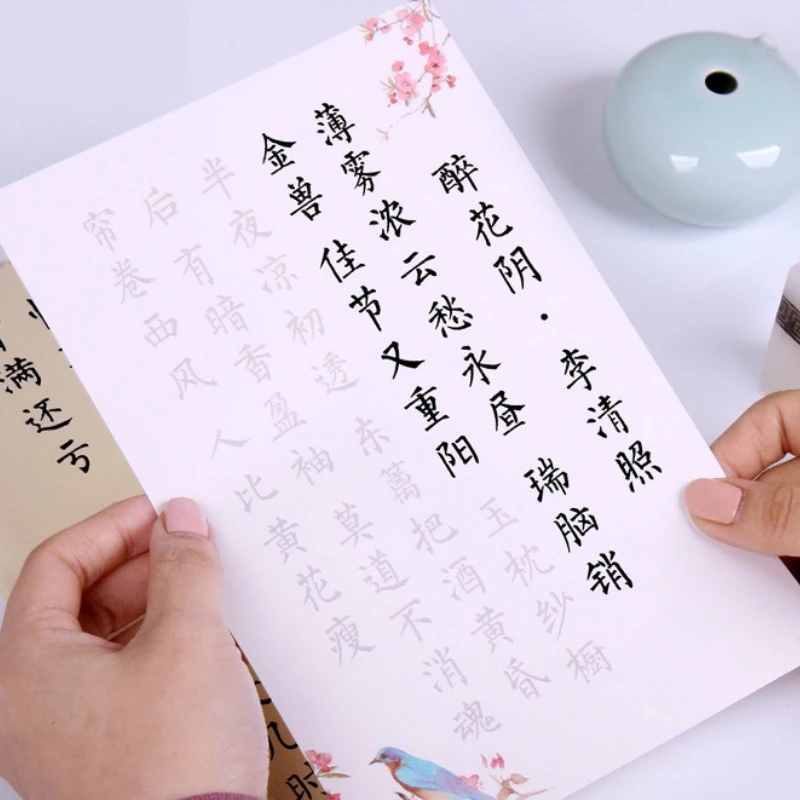 醉花阴·李清照
薄雾浓云愁永昼 瑞脑销
金兽 佳节又重阳 玉枕纱橱
半夜凉初透 东篱把酒黄昏
后 有暗香盈袖 莫道不消魂
帘卷西风 人比黄花瘦
满还亏
几时